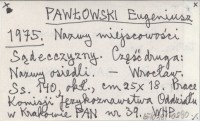 PAWŁOWSKI Eugeniusz
1975. Nazwy miejscowości
Sądecczyzny. Część druga:
Nazwy osiedli. — Wrocław.
Ss. 140, okł., cm 25x18. Prace
Komisji Językoznawstwa Oddziału
w Krakowie PAN nr 39. WHB